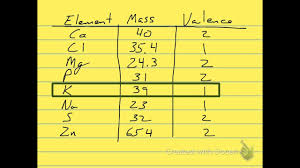 Element Mass Valence
Ca 40 2
Cl 35.4 1
Mg 24.3 2
P 31 2
K 39 1
Na 23 1
S 32 2
Zn 65.4 2